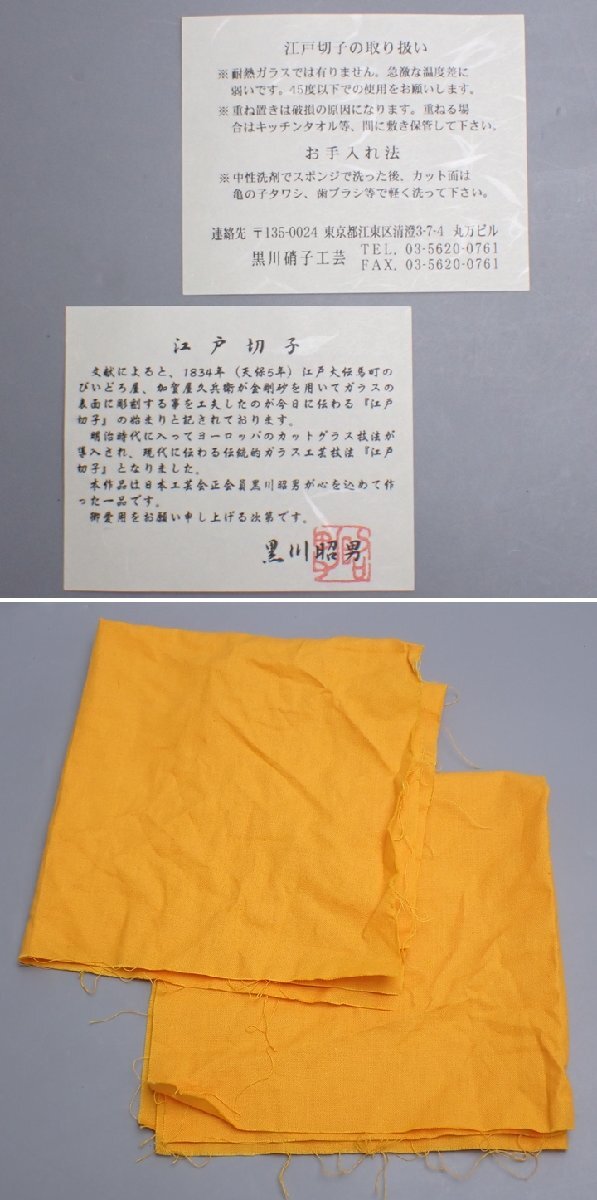 江戸切子の取り扱い
※耐熱ガラスでは有りません、急激な温度差に
弱いです。45度以下での使用をお願いします。
※重ね置きは破損の原因になります。重ねる場
合はキッチンタオル等、間に敷き保管して下さい。
お手入れ法
※中性洗剤でスポンジで洗った後、カット面は
亀の子タワシ、歯ブラシ等で軽く洗って下さい。
連絡先 〒135-0024 東京都江東区清澄3-7-4 丸万ビル
黒川硝子工芸 TEL. 03-5620-0761
FAX. 03-5620-0761
江戸切子
文献によると、1834年(天保5年)江戸大伝馬町の
びいどろ屋、加賀屋久兵衛が金剛砂を用いてガラスの
表面に彫刻する事を工夫したのが今日に伝わる『江戸
切子』の始まりと記されております。
明治時代に入ってヨーロッパのカットグラス技法が
導入され、現代に伝わる伝統的ガラス工芸技法『江戸
切子』となりました。
本作品は日本工芸会正会員黒川昭男が心を込めて作
った一品です。
御愛用をお願い申し上げる次第です。
黒川昭男